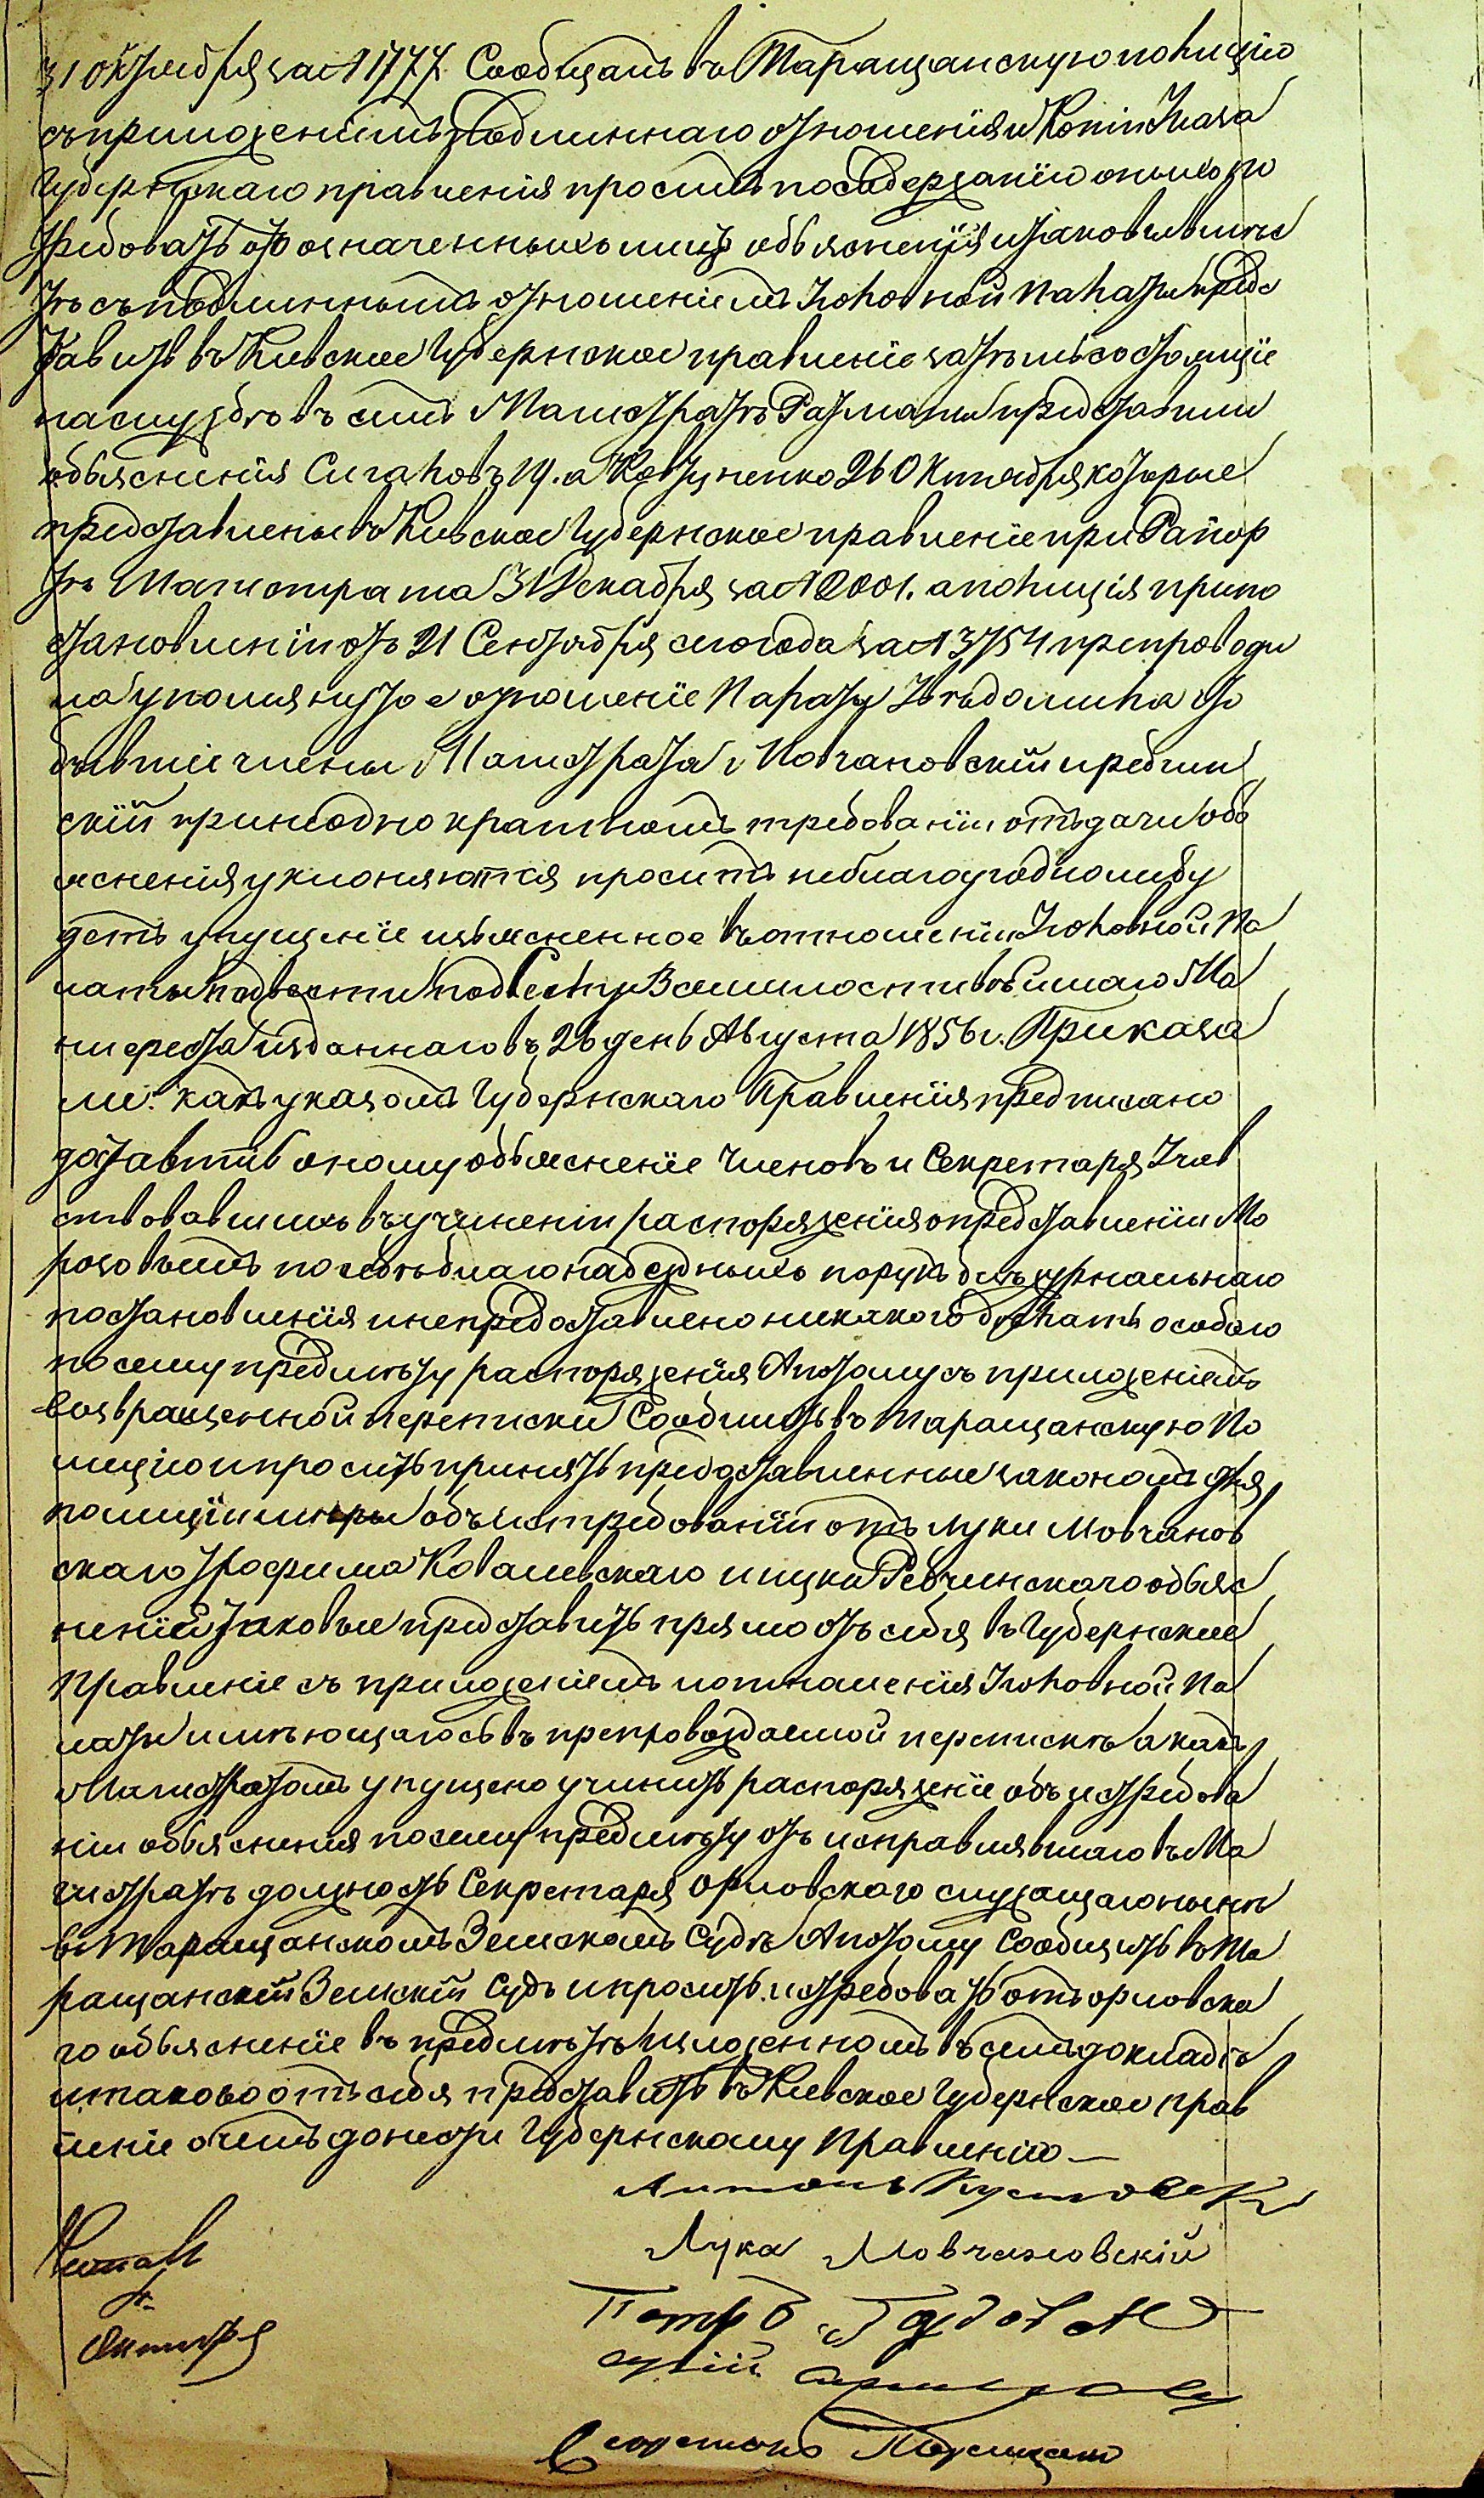 31 октября за № 1777. Сообщатъ въ Таращанскую полицію
съ приложеніемъ подлиннаго отношенія и копіи Указа
Губернскаго правленія проситъ по содержанію оныхъ по
требовать отъ означенныхъ лицъ объясненія и таковые вмѣс
тѣ съ подлиннымъ отношеніемъ Уголовной Палаты предс
тавить въ Кіевское Губернское правленіе затѣмъ состоящіе
на службѣ въ семъ Магистратѣ Ратманы представили
объясненія Сигаловъ 19. а Ковтуненко 26 Октября которые
представлены въ Кіевское Губернское правленіе при Рапор
тѣ Магистрата 31 Декабря за № 2001. а полиція при по
становленіи отъ 21 Сентября сего года за № 13754 препроводи
ла упомянутое отношеніе Палаты Увѣдомила что
бывшіе члены Магистрата Мовчановскій и Ребчин
скій при неоднократномъ требованіи отъ дачи объ
ясненія уклоняются проситъ не благоугодно ли бу
детъ упущеніе изъясненное въ отношеніи Уголовной Па
латы подвести подъ силу Всемилостивѣйшаго Ма
нифеста изданнаго въ 26 день Августа 1856 г. Приказа
ли: какъ указомъ Губернскаго Правленія предписано
доставить оному объясненіе Членовъ и Секретаря Учав
ствовавшихъ въ учиненіи распоряженія о представленіи Мо
розовымъ по себѣ благонадежныхъ порукъ безъ журнальнаго
постановленія и не предоставлено никакого дѣлать особаго
по сему предмѣту распоряженія А потому съ приложеніемъ
возвращенной переписки Сообщить въ Таращанскую По
лицію и просить принять предоставленные закономъ для
полиціи мѣры объ истребованіи отъ Луки Мовчанов
скаго Трофима Ковалевскаго и Луки Ребчинскаго объяс
неній таковые представить прямо отъ себя въ Губернское
Правленіе съ приложеніемъ и отношенія Уголовной Па
латы имѣющагось въ препровождаемой перепискѣ а какъ
Магистратомъ упущено учинить распоряженіе объ истребова
ніи объясненія по сему предмѣту отъ исправлявшаго въ Ма
гистратѣ должность Секретаря Орловскаго служащаго нынѣ
въ Таращанскомъ Земскомъ Судѣ А потому Сообщить въ Та
ращанскій Земскій Судъ и просить истребовать отъ Орловска
го объясненіе въ предмѣтѣ изложенномъ въ семъ докладѣ
и таково отъ себя представить въ Кіевское Губернское прав
леніе о чемъ донести Губернскому Правленію —
Антонъ
Лука Мовчановскій
Петръ
Октября